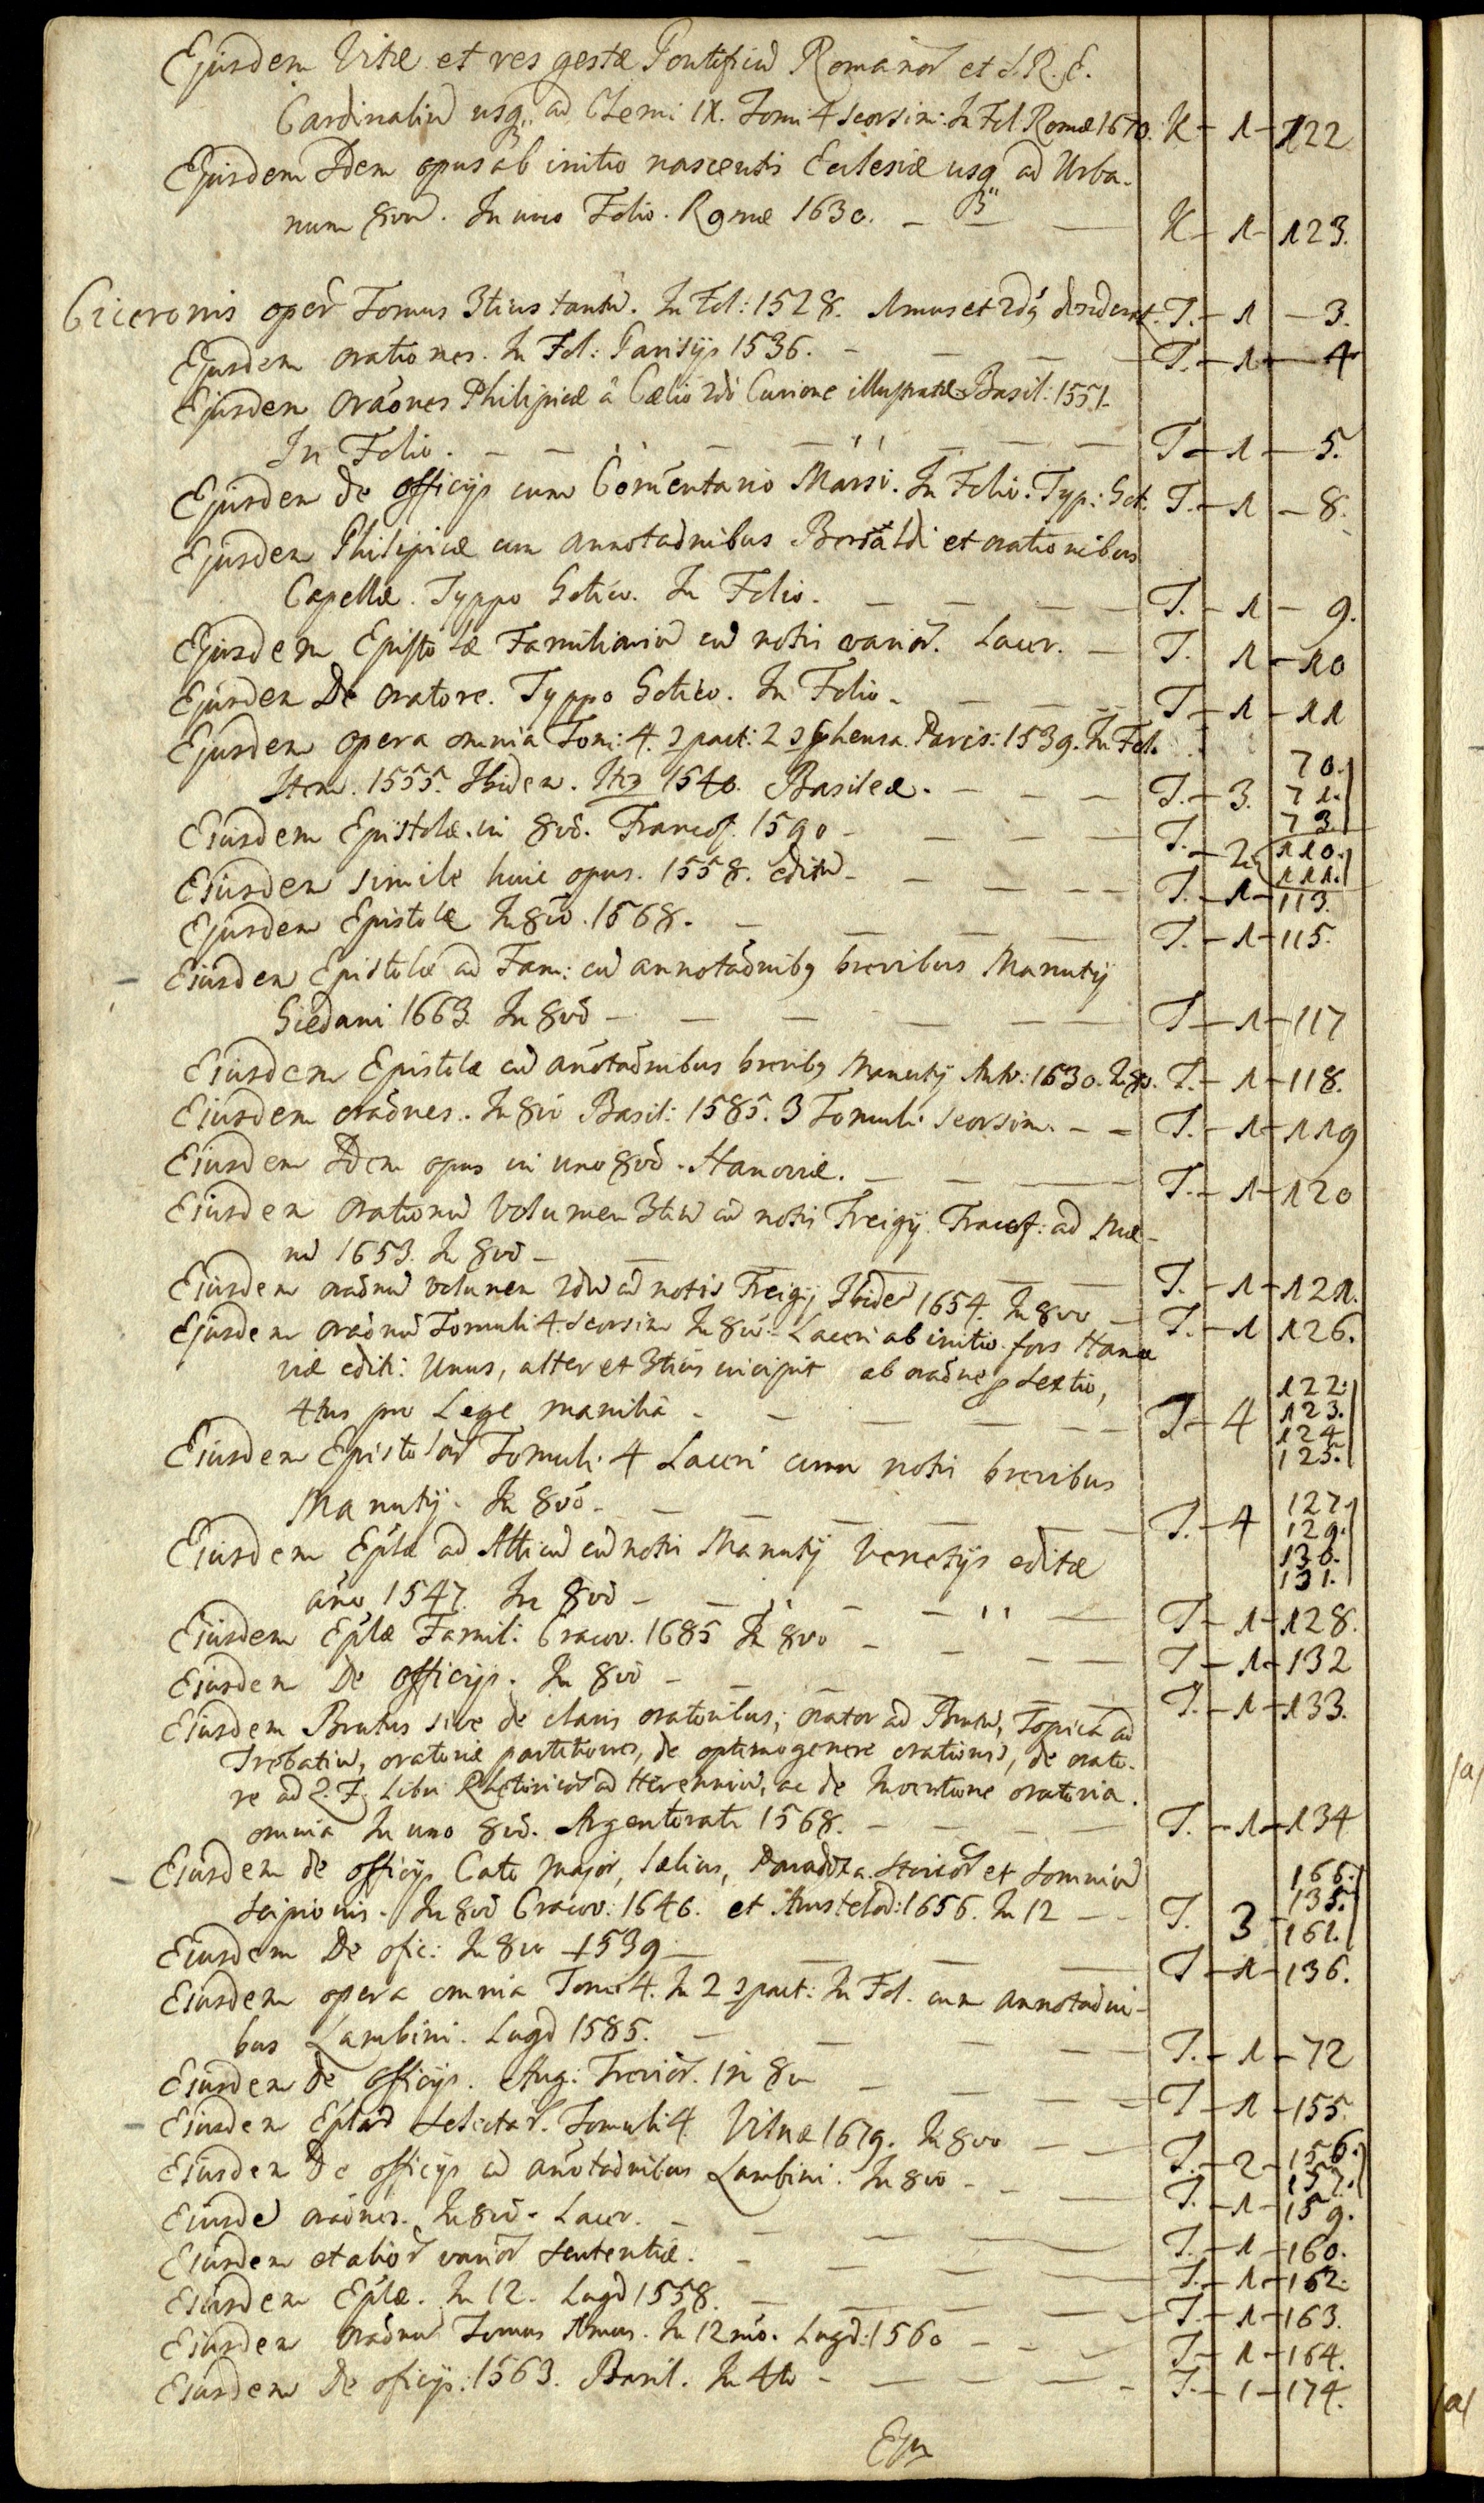 Ejusdem Vitæ et res gestæ Pontificũ Romanor et S.R.E.
Cardinaliũ usq. ad Clemi: IX. Tomi 4 seorsim: In Fol. Romæ 1670. K - 1 - 122
Ejusdem Idem opus ab initio nascentis Ecclesiæ usq ad Urba-
num 8vũ. In uno Folio. Romæ 1630. - K - 1 - 123.
Ciceronis oper Tomus 3tius tantũ. In Fol: 1528. 1mus et 2dg desiderat. T. - 1 - 3.
Ejusdem orationes. In Fol: Parisijs 1536. - T. - 1 - 4
Ejusdem oraões Philipicæ â Cælio 2dô Curione illustratæ Basil: 1551.
In Folio. - T - 1 - 5.
Ejusdem De officijs cum Comentario Marsi. In Folio. Typ: Got. T. - 1 - 8.
Ejusdem Philipicæ cum annotaõnibus Beroaldi et orationibus
Capellæ. Typpo Gotico. In Folio. - T. - 1 - 9.
Ejusdem Epistolæ Familiariũ cũ notis varior. Lacer. - T. 1 - 10
Ejusdem De oratore. Typpo Gotico. In Folio. - T - 1 - 11
Ejusdem opera omnia Tom: 4. Paris: 1539. In Fol.
Item. 1555. Ibidem. 1540. Basileæ. - T. - 3. 70. 71. 73.
Ejusdem Epistolæ. in 8võ. Francof. 1590 - T. - 2. 110. 111.
Ejusdem simile huic opus. 1558. editũ - T. - 1 - 113.
Ejusdem Epistolæ In 8vo. 1568. - T. - 1 - 115.
Ejusdem Epistolæ ad Fam: cũ annotaõnibg brevibus Manutij
Giedani 1663. In 8võ - T - 1 - 117
Ejusdem Epistolæ cũ anotaõnibus brevibg Manutij Antv: 1630. In 8vo. T. - 1 - 118.
Ejusdem oraões. In 8vo Basil: 1585. 3 Tomuli seorsim. - T. - 1 - 119
Ejusdem Idem opus in uno 8võ. Hanoviæ. - T. - 1 - 120
Ejusdem orationũ Volumen 3tiũ cũ notis Freigij. Francof: ad Mæ-
nũ 1653. In 8võ - T. - 1 - 121.
Ejusdem oraõnũ volumen 2dũ cũ notis Freigij Ibidẽ 1654. In 8vo - T. - 1 126.
Ejusdem oraõnũ Tomuli 4. seorsim In 8vo: Laceri ab initio fors Hano
viæ editi: Unus, alter et 3tius incipit ab oraõne p Sextio,
4tus pro Lege maniliâ - T - 4 122. 123. 124. 125.
Ejusdem Epistolar Tomuli. 4 Laceri cum notis brevibus
Manutij. In 8võ. - T. - 4 127. 129. 130. 131.
Ejusdem Eplæ ad Atticũ cũ notis Manutij Venetijs editæ
ãno 1547. In 8võ - T - 1 - 128.
Ejusdem Eplæ Famil: Cracov. 1685 In 8vo - T - 1 - 132
Ejusdem De officijs. In 8vo - T. - 1 - 133.
Ejusdem Brutus sive de claris oratoribus, orator ad Brutũ, Topica ad
Trebatiũ, oratoriæ partitiones, de optimo genere orationis, de orato-
re ad Q. F. Libri Rhetoricor ad Herenniũ, ac de Inventione oratoria.
omnia In uno 8võ. Argentorati 1568. - T. - 1 - 134
Ejusdem de officijs Cato Major, Lælius, Paradoxa Stoicor et Somniũ
Scipionis. In 8võ Cracov: 1646. et Amstelod: 1656. In 12 - T. 3 166. 135. 161.
Ejusdem De ofic: In 8vo 1539 - T - 1 - 136.
Ejusdem opera omnia Tomi 4. In 2 In Fol. cum annotaõni-
bus Lambini. Lugd 1585. - T. - 1 - 72
Ejusdem De officijs. Aug: Trevir. In 8vo - T - 1 - 155.
Ejusdem Eplar Selectar. Tomuli 4 Vilnæ 1679. In 8vo - T. - 2 - 156. 157.
Ejusdem De officijs cũ anotaõnibus Lambini. In 8vo - T. - 1 - 159.
Ejusdẽ oraões. In 8võ. Lacer. - T. - 1 - 160.
Ejusdem et alior varior Sententiæ. - T. - 1 - 162.
Ejusdem Eplæ. In 12. Lugd 1558. - T - 1 - 163.
Ejusdem oraõnũ Tomus 1mus. In 12mo. Lugd: 1560 - T - 1 - 164.
Ejusdem De oficijs: 1563. Basil. In 4to - T. - 1 - 174.
Ejus
/a/
/a/